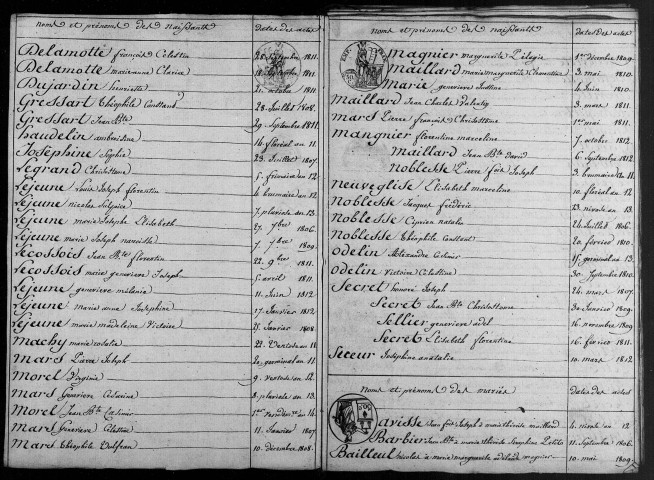 noms et prénoms des naissants Dates des actes
Delamotte françois Célestin 1811.
Delamotte marieanne Clarice 1811.
Dujardin henriette 21. octobre 1811.
Gressart Théophile Constant 28. Juillet 1808.
Gressart Jean Bte 29. Septembre 1811.
haudelin ambroisine 14. floréal an 11.
Joséphine Sophie 23. Juillet 1807.
Legrand Christistanne 5. frimaire an 12.
Lejeune Louis Joseph florentin 4. brumaire an 12.
Lejeune nicolas Sulpice 7. pluviose an 13.
Lejeune marie Josephe Elisabeth 27. 7bre 1806.
Lejeune marie Joseph narcisse 7. 7bre 1809.
Lecossois Jean Bte florentin 22. 9bre 1811.
Lecossois marie genevieve Joseph 5. avril 1811.
Lejeune genevieve mélanie 11. Juin 1812.
Lejeune marie anne Josephine 17. Janvier 1812.
Lejeune marie madeleine Victoire 21. Janvier 1808.
Machy marie rosalie 22. Ventose an 11.
Mars Pierre Joseph 2. germinal an 11.
Morel Virginie 9. ventose an 12.
Mars Genevieve Césarine 8. pluviose an 13.
Morel Jean Bte Casimir 1er vendémre an 14.
Mars Genevieve Célestine 11. Janvier 1807.
Mars Théophile Dulfran 10. décembre 1808.
noms et prénoms des naissants Dates des actes
Magnier marguerite Pélagie 1er décembre 1809.
Maillard marie marguerite 3. mai 1810.
Marie genevieve Justine 4. Juin 1810.
Maillard Jean Charles Valentin 3. mars 1811.
Mars Pierre françois 1er mai 1811.
Mangnier florentine marceline 7. octobre 1812.
Maillard Jean Bte david 6. Septembre 1812.
Noblesse Pierre fois Joseph 3. brumaire an 11.
Neuveglise Elisabeth marceline 10. floréal an 12.
Noblesse Jacques frédéric 23. nivose an 13.
Noblesse Ciprien natalis 24. Juillet 1806.
Noblesse Théophile Constant 20. février 1810.
Odelin Alexandre Casimir 15. germinal an 13.
Odelin Victoire Célestine 30. Septembre 1810.
Secret honoré Joseph 24. mars 1807.
Secret Jean Bte 30. Janvier 1809.
Sellier genevieve adel 16. novembre 1809.
Secret Elisabeth florentine 16. février 1811.
Seceur Joséphine anastasie 10. mars 1812.
noms et prénoms des mariés Dates des actes
avisse Jean fois Joseph à marie thérèse maillard 4. nivose an 12
Barbier Jean Bte à marie thérèse Seraphine 11. Septembre 1806.
Bailleul nicolas à marie marguerite adelaide magnier 10. mai 1809.